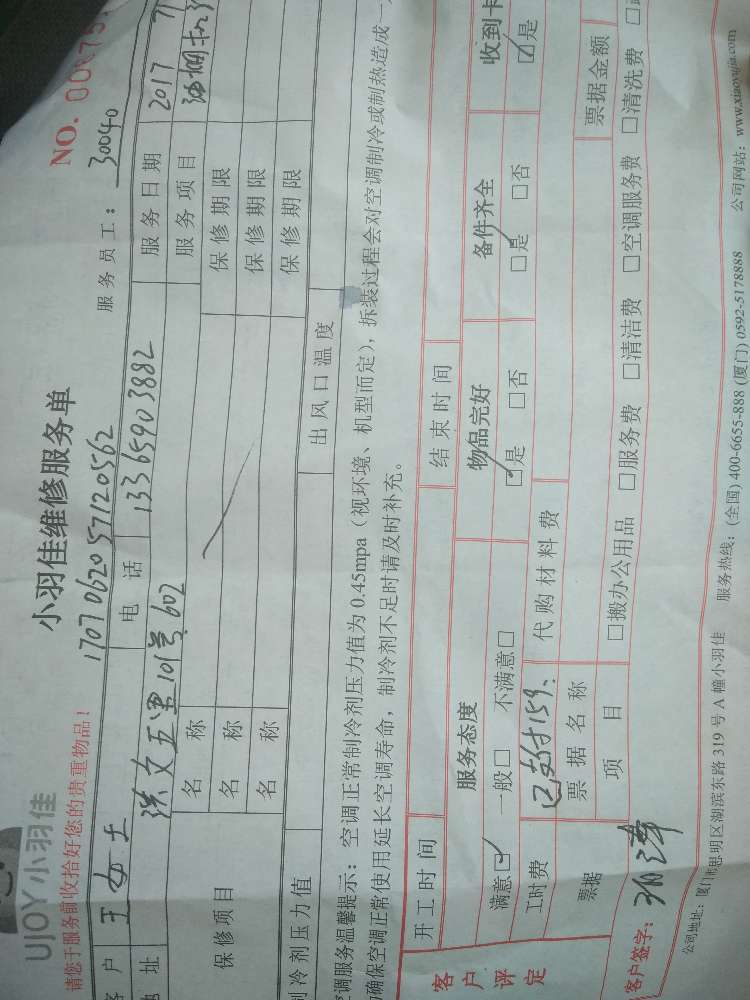 UJOY小羽佳
小羽佳维修服务单
NO.
1707062057120562
请您于服务前收拾好您的贵重物品！
服务员工：30040
客户 王女士 电话 13365903882 服务日期 2017
地址 洪文五里105号602 服务项目 油烟机
保修项目 名称 保修期限
名称 保修期限
名称 保修期限
制冷剂压力值 出风口温度
空调服务温馨提示：空调正常制冷剂压力值为0.45mpa（视环境、机型而定），拆装过程会对空调制冷或制热造成一
为确保空调正常使用延长空调寿命，制冷剂不足时请及时补充。
开工时间 结束时间
客户评定 服务态度 物品完好 备件齐全 收到卡
满意☑ 一般□ 不满意□ ☑是 □否 ☑是 □否 ☑是
工时费 已支付159. 代购材料费
票据 票据名称 票据金额
项目 □搬办公用品 □服务费 □清洁费 □空调服务费 □清洗费
客户签字：
公司地址：厦门市思明区湖滨东路319号A幢小羽佳 服务热线：(全国) 400-6655-888 (厦门) 0592-5178888 公司网站：www.xiaoyujia.com